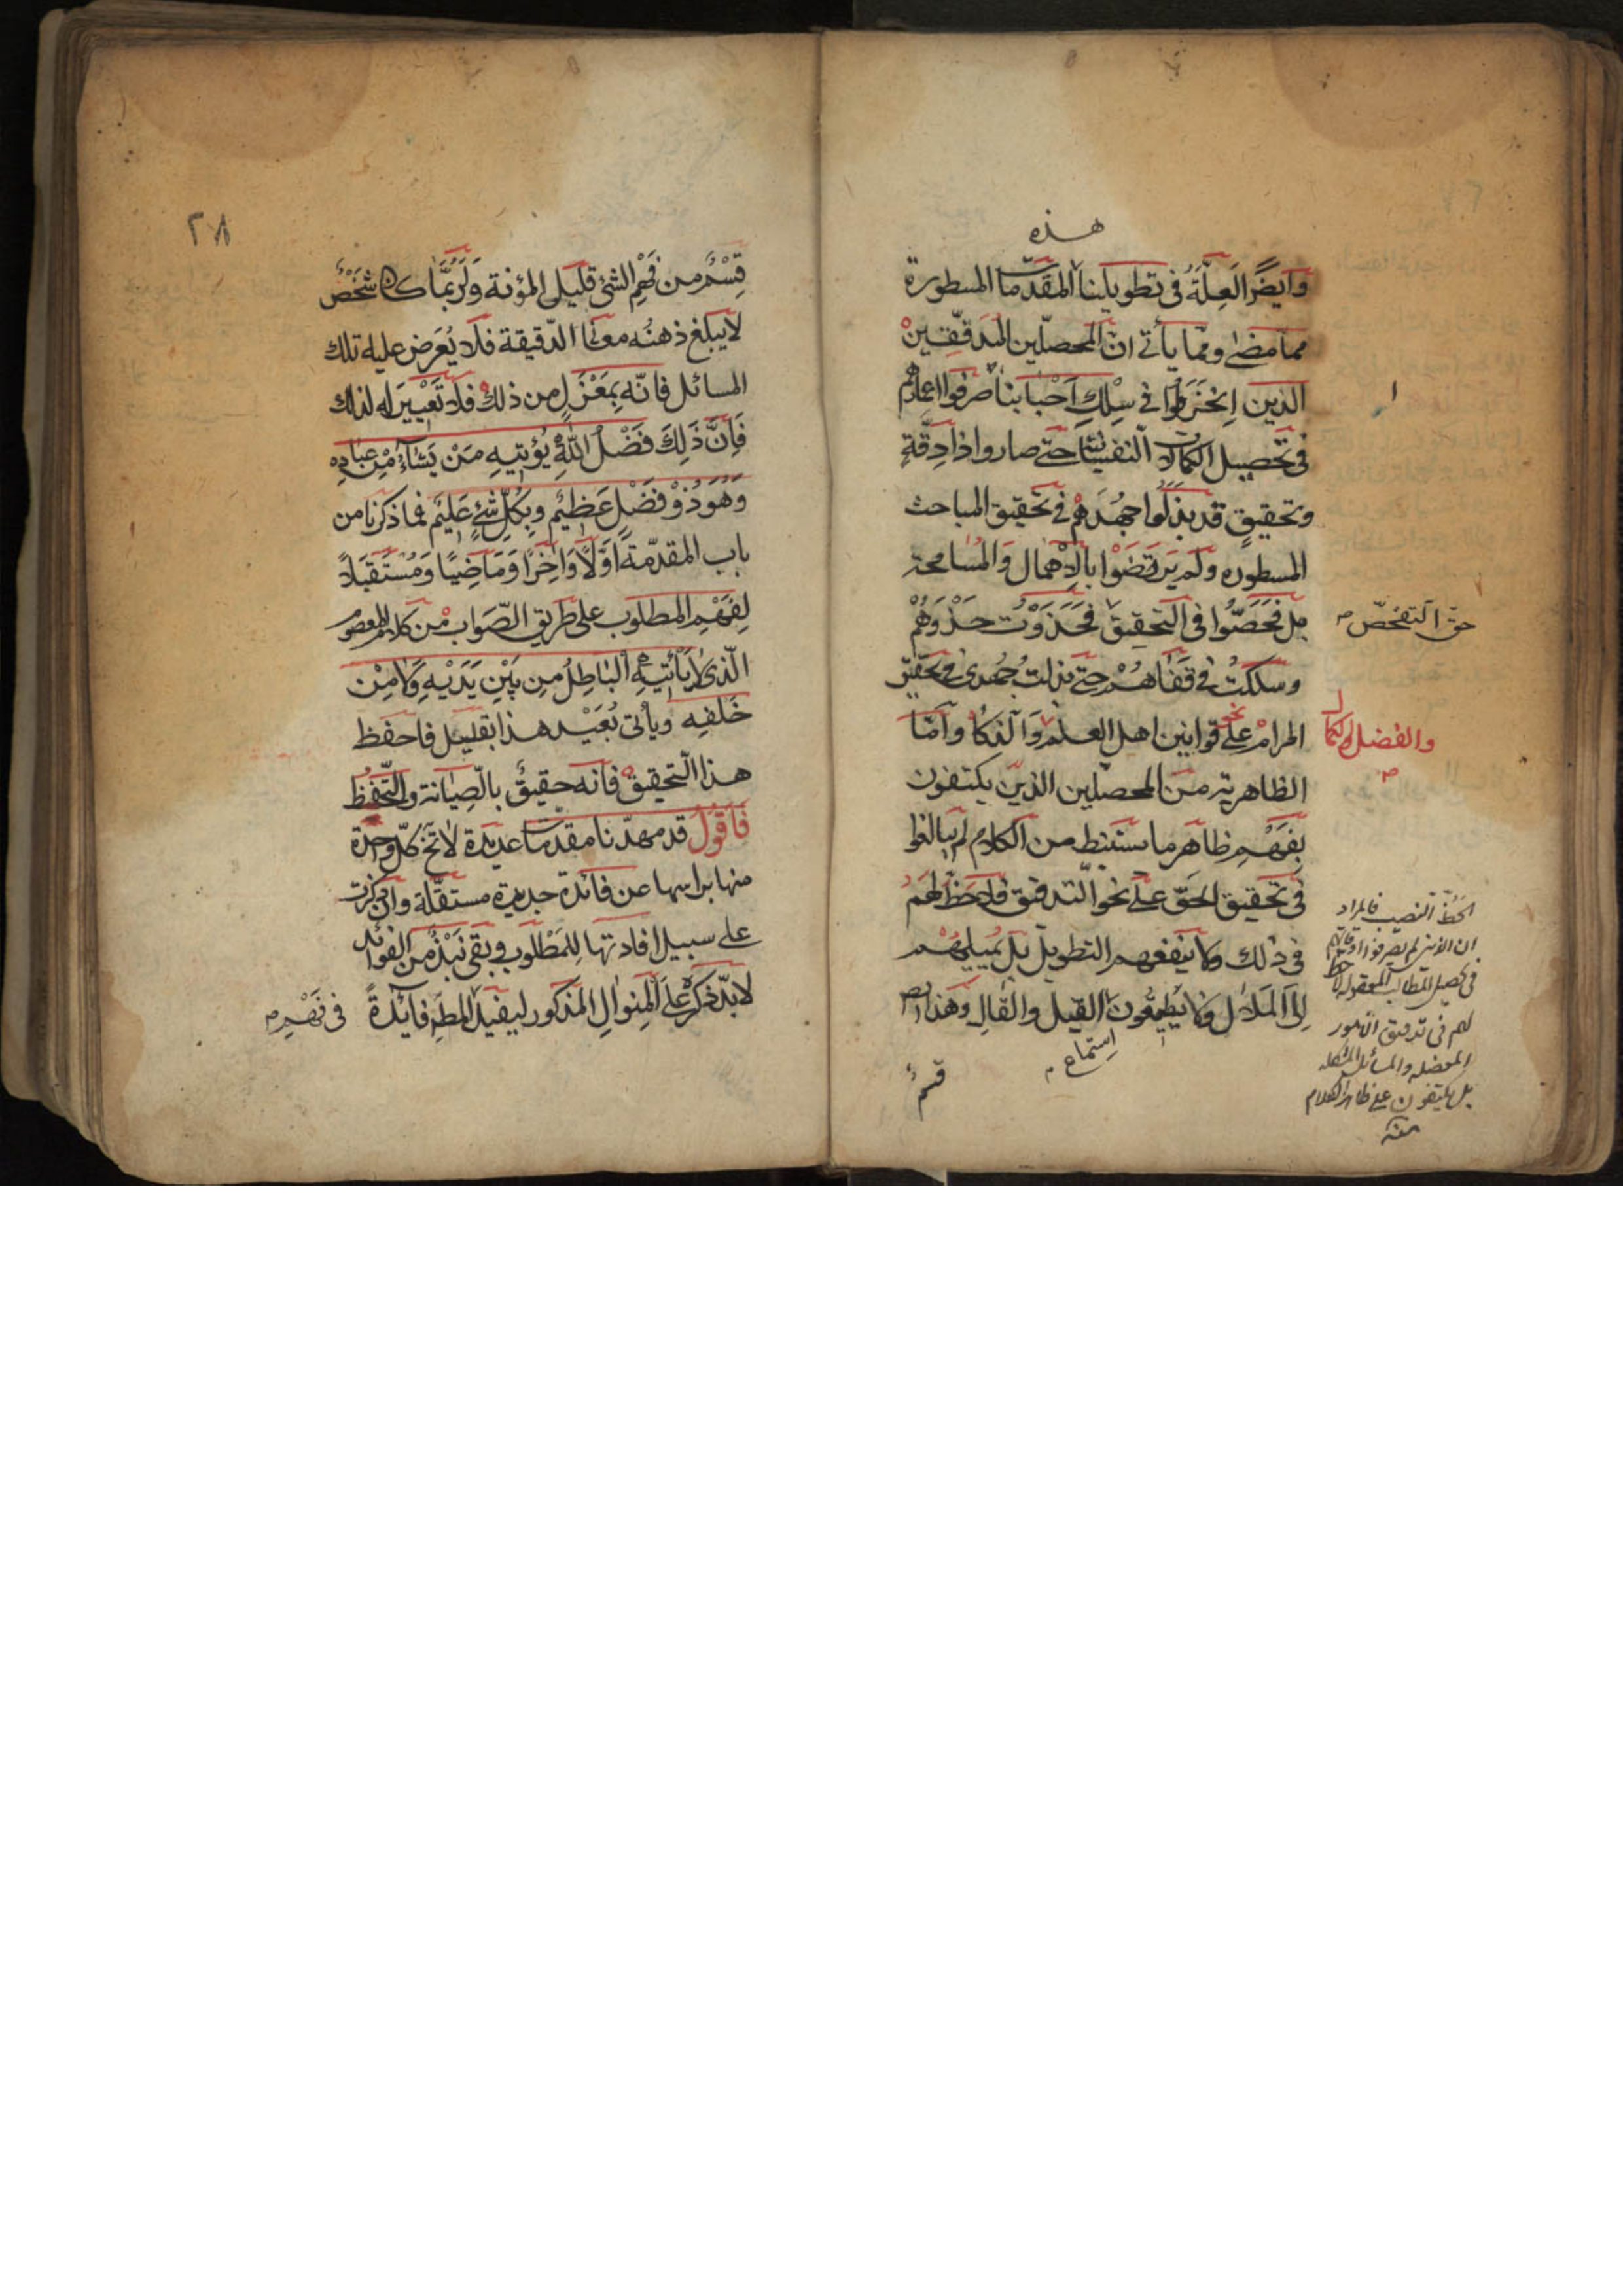 هذه
وايضًا العلّة في تطويلنا المقدّمات المسطورة
ممّا مضى وممّا يأتى انّ المحصّلين المدقّقين
الذين اِنخرطوا في سِلكِ اَحْبابنا صرفوا اعمارهم
في تحصيل الكمالات النفسانيّة حتّى صاروا ذا دِقّةٍ
وتحقيقٍ قد بذلوا جهدهم في تحقيق المباحث
المسطوره ولم يرتضوا بالاهمال والمسامحة
بل فحّصّوا في التحقيق فحذوت حذوهم
حق التفحّص
وسلكت في قفاهم حتى بذلت جُهدى في تحقيق
المرام على نحو قوانين اهل العلم والذكا وامّا
والفضل والكمال
الظاهرية من المحصّلين الذين يكتفون
بفهم ظاهر ما يستنبط من الكلام لم يبالغوا
في تحقيق الحقّ على نحو التدقيق فلا حظّ لهم
في ذلك ولا ينفعهم التطويل بل يميلهم
اِلى الملال ولا يطيقون القيل والقال وهذا ايض
اِستماع
قسمٌ
الحظّ النصيب فالمراد
ان الذين لم يصرفوا اوقاتهم
في تحصيل المطالب المعقولة لا حظ
لهم في تدقيق الامور
المعضله والمسائل المشكله
بل يكتفون على ظاهر الكلام
منه
٢٨
قِسْمٌ من فَهْمِ الشئ قليل المؤنة وَلَرُبَّمَا كان شَخْصٌ
لا يبلغ ذهنُه معانى الدّقيقة فلا يُعرَض عليه تلك
المسائل فانّه بِمَعْزَلٍ من ذلك فلا تَعْيِيرَ له لذلك
فَاِنَّ ذَلِكَ فَضْلُ اللّٰهِ يُؤتِيهِ مَنْ يَشَآءُ مِنْ عِبَادِهِ
وَهُوَ ذُوْ فَضْلٍ عَظِيْمٍ وبِكُلِّ شَئٍ عَلِيْمٌ فما ذكرنا من
باب المقدّمة اَوّلًا وَاٰخِرًا وَمَاضِيًا وَمُسْتَقْبَلًا
لِفَهْمِ المطلوب على طريق الصّواب مْن كلام المعصوم
الّذى لَا يَأْتِيهِ الْبَاطِلُ مِن بَيْنِ يَدَيْهِ وَلَا مِنْ
خَلفِه ويأتى بُعَيْد هذا بقليل فاحفظ
هذا التّحقيق فانه حقيقٌ بالصّيانة والتّحفّظ
فَاَقُولُ قد مهّدنا مقدمات عديدة لا تخ كلّ واحدة
منها براسها عن فائدة جديدة مستقلّة وان ذكرت
على سبيل افادتها لِلمَطْلُوب وبقى نَبْذٌ من الفوائد
لابدّ ذكره عَلَى الْمِنوالِ المذكور ليفيد المط فائدةً
في فَهْمِه